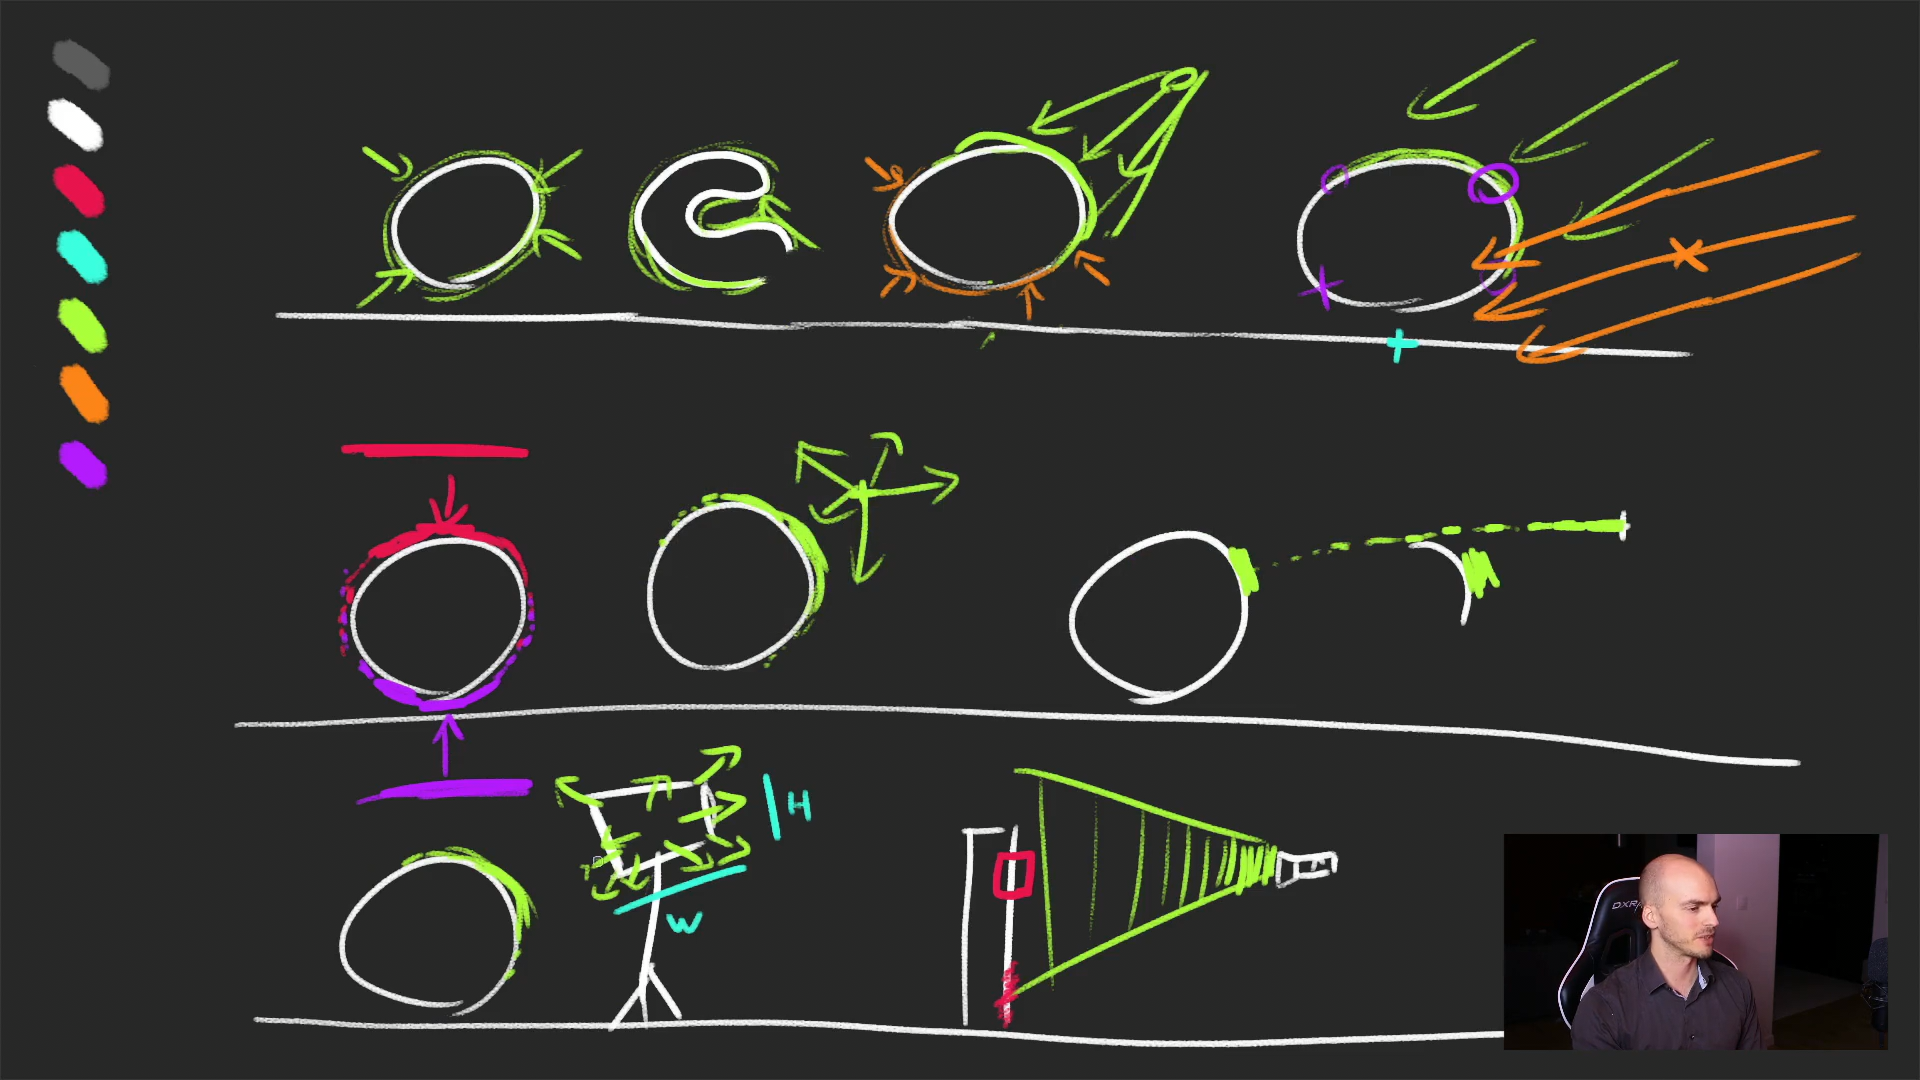 H
W
DXRA